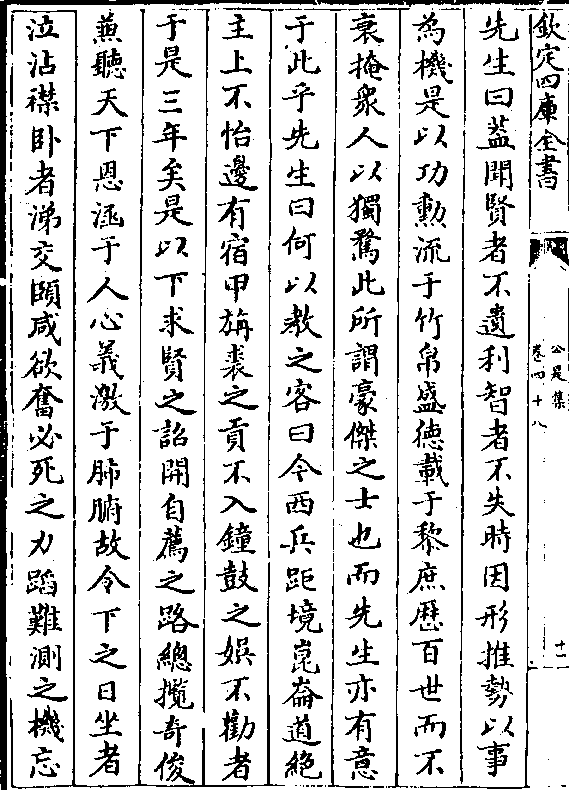 欽定四庫全書
公是集
卷四十八
十一
先生曰蓋聞賢者不遺利智者不失時因形推勢以事
為機是以功勲流于竹帛盛德載于黎庶歴百世而不
衰掩衆人以獨騖此所謂豪傑之士也而先生亦有意
于此乎先生曰何以教之客曰今西兵距境崑崙道絶
主上不怡邊有宿甲旃裘之貢不入鐘鼓之娯不勸者
于是三年矣是以下求賢之詔開自薦之路總攬奇俊
兼聽天下恩涵于人心義激于肺腑故令下之日坐者
泣沾襟卧者涕交頤咸欲奮必死之力蹈難測之機忘